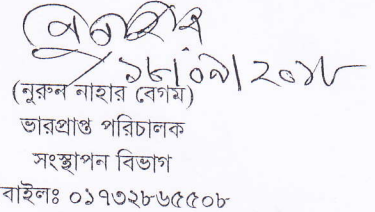 ১৮/০৯/২০১৮
(নুরুন নাহার বেগম)
ভারপ্রাপ্ত পরিচালক
সংস্থাপন বিভাগ
বাইলঃ ০১৭৩২৮৬৫৫০৮